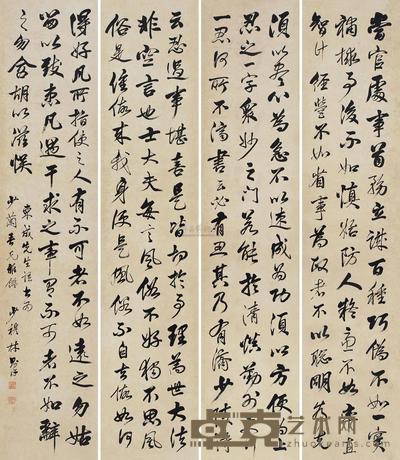 當官處事首務立誠百種巧偽不如一實
補救於後不如慎始防人不如
智計經營不如省事為政者不以聰明為先
須以盡心為急不以速成為功須以方便為上
忍之一字衆妙之門若能於清慎勤外
一忍何所不濟書云必有忍其乃有濟少陵詩
云忍過事堪喜是皆切於事理為世大法
非空言也士大夫每言風俗不好獨不思風
俗是誰做來我身便是風俗不自去做如何
得好凡所指使之人有不可者不如遠之勿姑
留以致患凡遇干求之事有不可者不如辭
之勿含胡以滋悞
東萊先生語書為
少蘭兄雅屬 少穆林則徐